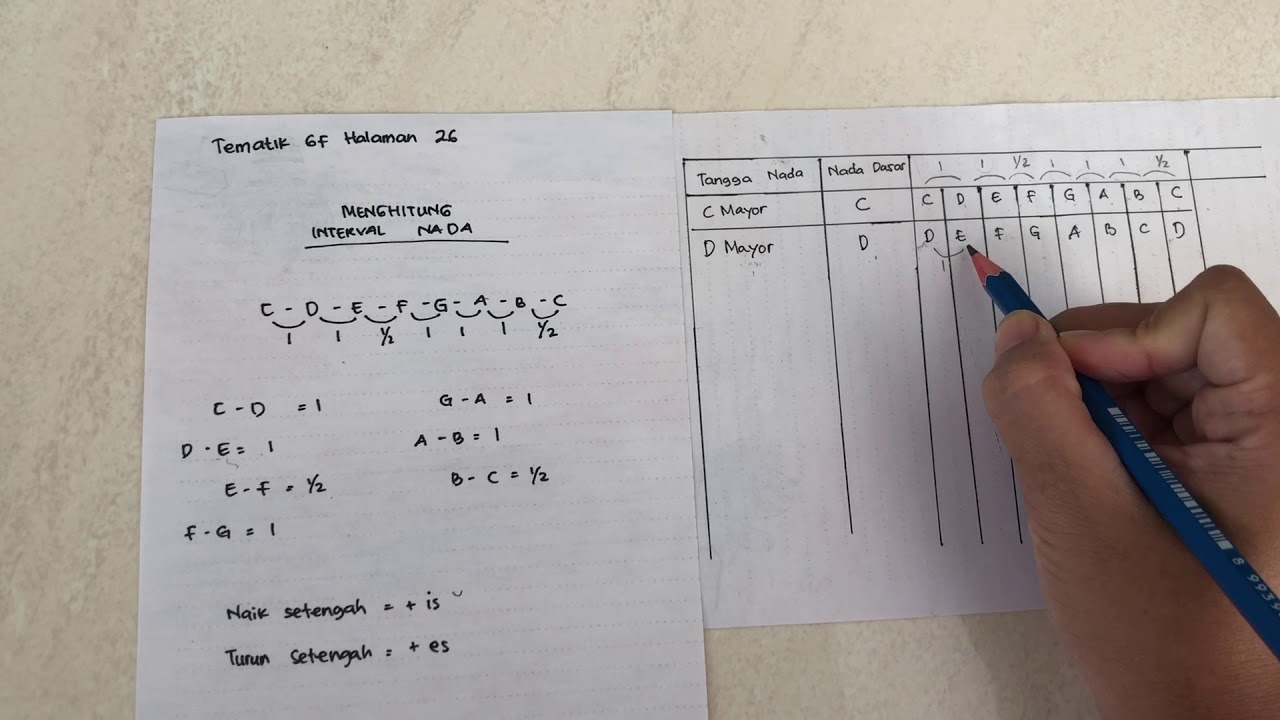 Tematik 6f Halaman 26
MENGHITUNG
INTERVAL NADA
C - D - E - F - G - A - B - C
1 1 1/2 1 1 1 1/2
C - D = 1
G - A = 1
D - E = 1
A - B = 1
E - F = 1/2
B - C = 1/2
F - G = 1
Naik setengah = + is
Turun setengah = + es
Tangga Nada Nada Dasar 1 1 1/2 1 1 1 1/2
C Mayor C C D E F G A B C
D Mayor D D E F G A B C D
1